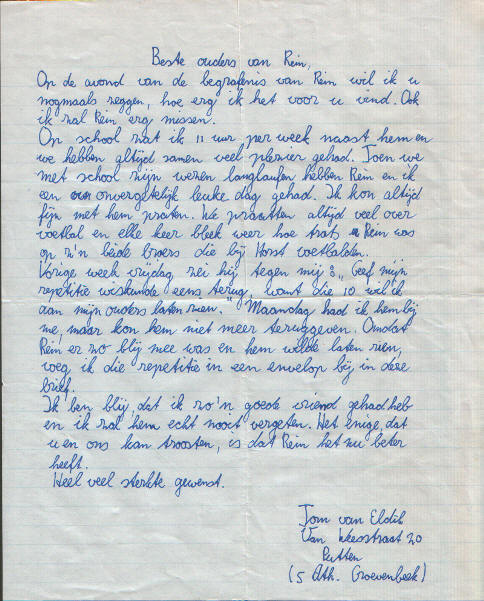 Beste ouders van Rein,
Op de avond van de begrafenis van Rein wil ik u
nogmaals zeggen, hoe erg ik het voor u vind. Ook
ik zal Rein erg missen.
Op school zat ik 11 uur per week naast hem en
we hebben altijd samen veel plezier gehad. Toen we
met school zijn wezen langlaufen hebben Rein en ik
een onvergetelijk leuke dag gehad. Ik kon altijd
fijn met hem praten. We praatten altijd veel over
voetbal en elke keer bleek weer hoe trots Rein was
op z'n beide broers die bij Horst voetbalden.
Vorige week vrijdag zei hij tegen mij: "Geef mijn
repetitie wiskunde eens terug, want die 10 wil ik
aan mijn ouders laten zien." Maandag had ik hem bij
me, maar kon hem niet meer teruggeven. Omdat
Rein er zo blij mee was en hem wilde laten zien,
voeg ik die repetitie in een envelop bij in deze
brief.
Ik ben blij, dat ik zo'n goede vriend gehad heb
en ik zal hem echt nooit vergeten. Het enige, dat
u en ons kan troosten, is dat Rein het nu beter
heeft.
Heel veel sterkte gewenst.
Tom van Eldik
Van 20
Putten
(5 Ath. Groevenbeek)